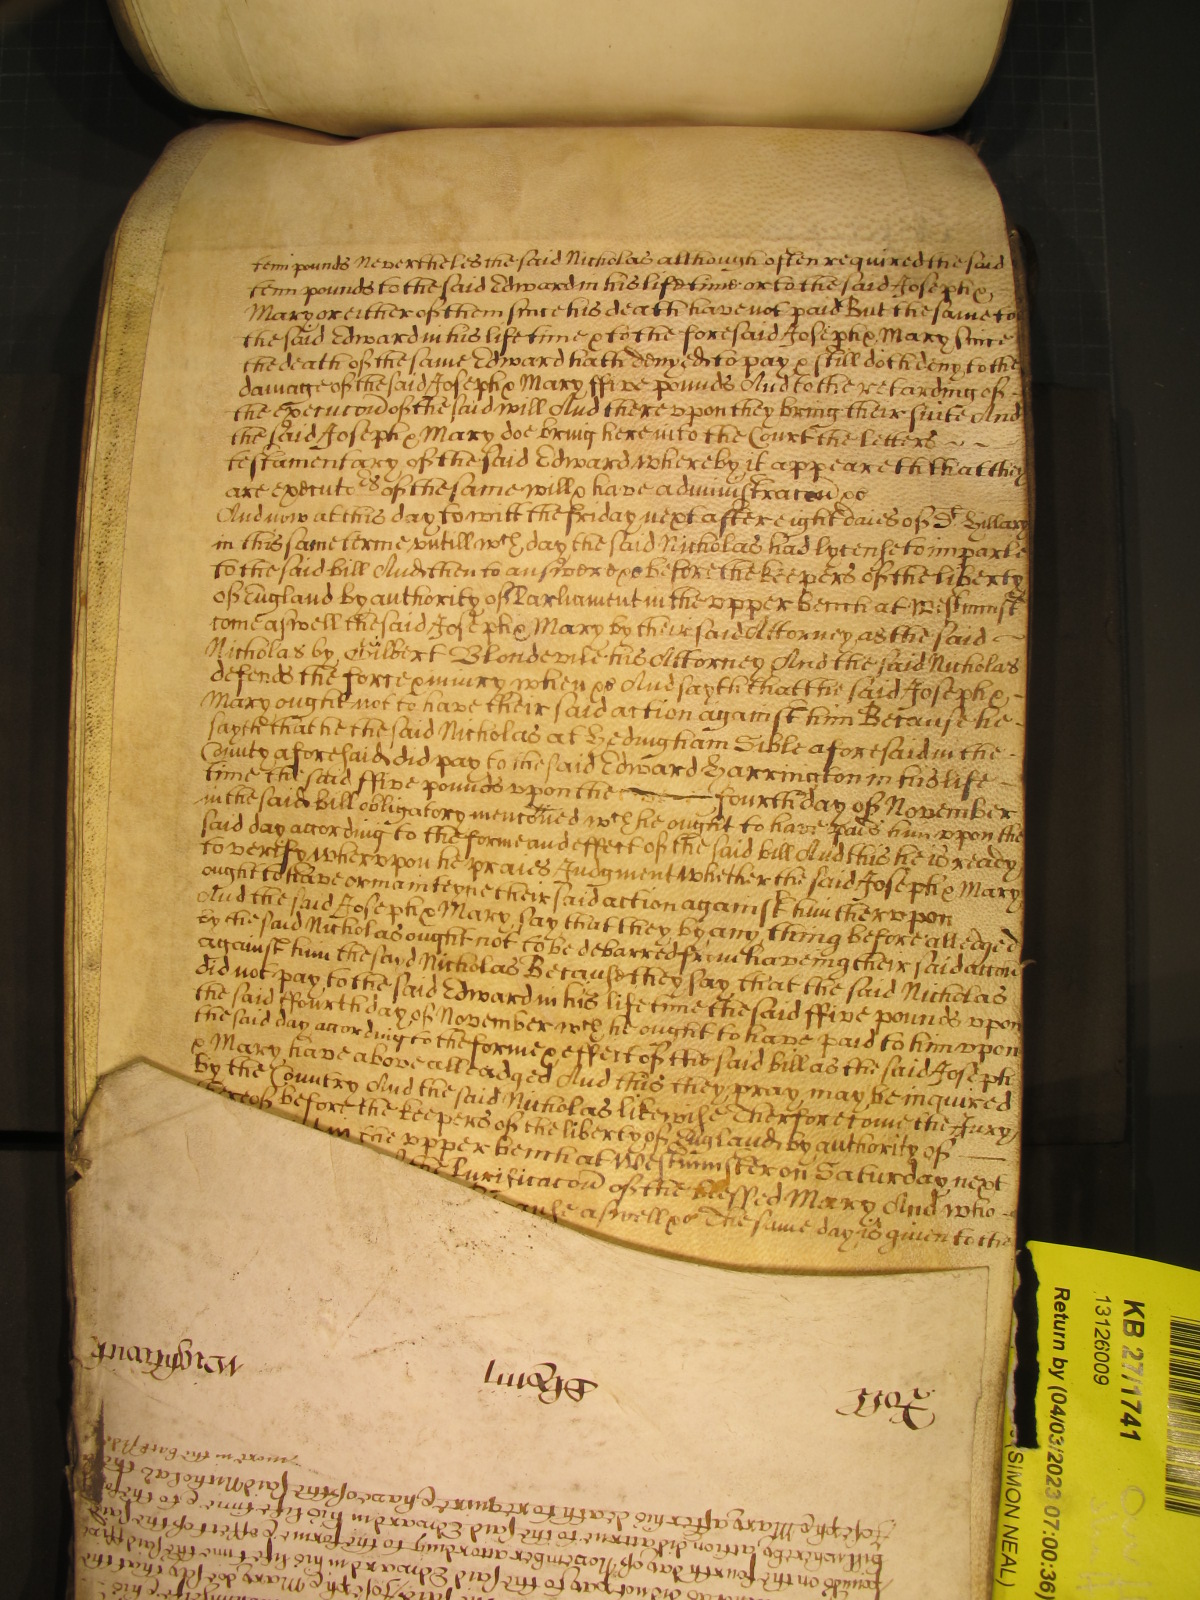 tenn pounds Nevertheles the said Nicholas although often required the said
tenn pounds to the said Edward in his life time or to the said Joseph &
Mary or either of them since his death have not paid But the same to
the said Edward in his life time & to the foresaid Joseph & Mary since
the death of the same Edward hath denyed to pay & still doth deny to the
damage of the said Joseph & Mary ffive pounds And to the retarding of
the execucon of the said will And thereupon they bring their suite And
the said Joseph & Mary doe bring here into the Court the letters
testamentary of the said Edward whereby it appeareth that they
are executors of the same will & have administracon &c
And now at this day to witt the friday next after eight daies of St Hillary
in this same terme untill wch day the said Nicholas had lycense to imparle
to the said bill And then to answere &c before the keepers of the liberty
of England by authority of Parliament in the upper bench at Westminstr
come aswell the said Joseph & Mary by their said Attorney as the said
Nicholas by Gilbert Blondevile his Attorney And the said Nicholas
defends the force & iniury when &c And sayth that the said Joseph &
Mary ought not to have their said action against him Because he
sayth that he the said Nicholas at Hedingham Sible aforesaid in the
County aforesaid did pay to the said Edward Harrington in his life
time the said ffive pounds upon the fourth day of November
in the said bill obligatory mentoned wch he ought to have paid him upon the
said day according to the forme and effect of the said bill And this he is ready
to verify Wherupon he praies Judgment whether the said Joseph & Mary
ought to have or mainteyne their said action against him therupon
And the said Joseph & Mary say that they by any thing before alledged
by the said Nicholas ought not to be debarred from haveing their said accon
against him the said Nicholas Because they say that the said Nicholas
did not pay to the said Edward in his life time the said ffive pounds upon
the said ffourth day of November wch he ought to have paid to him upon
the said day according to the forme & effect of the said bill as the said Joseph
& Mary have above alleadged And this they pray may be inquired
by the Country And the said Nicholas likewise Therfore come the Jury
before the keepers of the liberty of England by authority of
in the upper bench at Westminster on Saturday next
the Purificacon of the blessed Mary And who
aswell &c The same day is given to the
Wightwick
Roll
more in the back side
Joseph & Mary after his death to require & have of the said Nicholas the
bill whereby action did acrue to the said Edward in his life time & to the
pounds on the fourth day of November according to the forme & effect of the said
did not pay to the said Edward in his life time the said ffive
Joseph & Mary doe say that the
KB 27/1741
13126009
Return by (04/03/2023 07:00:36)
(SIMON NEAL)